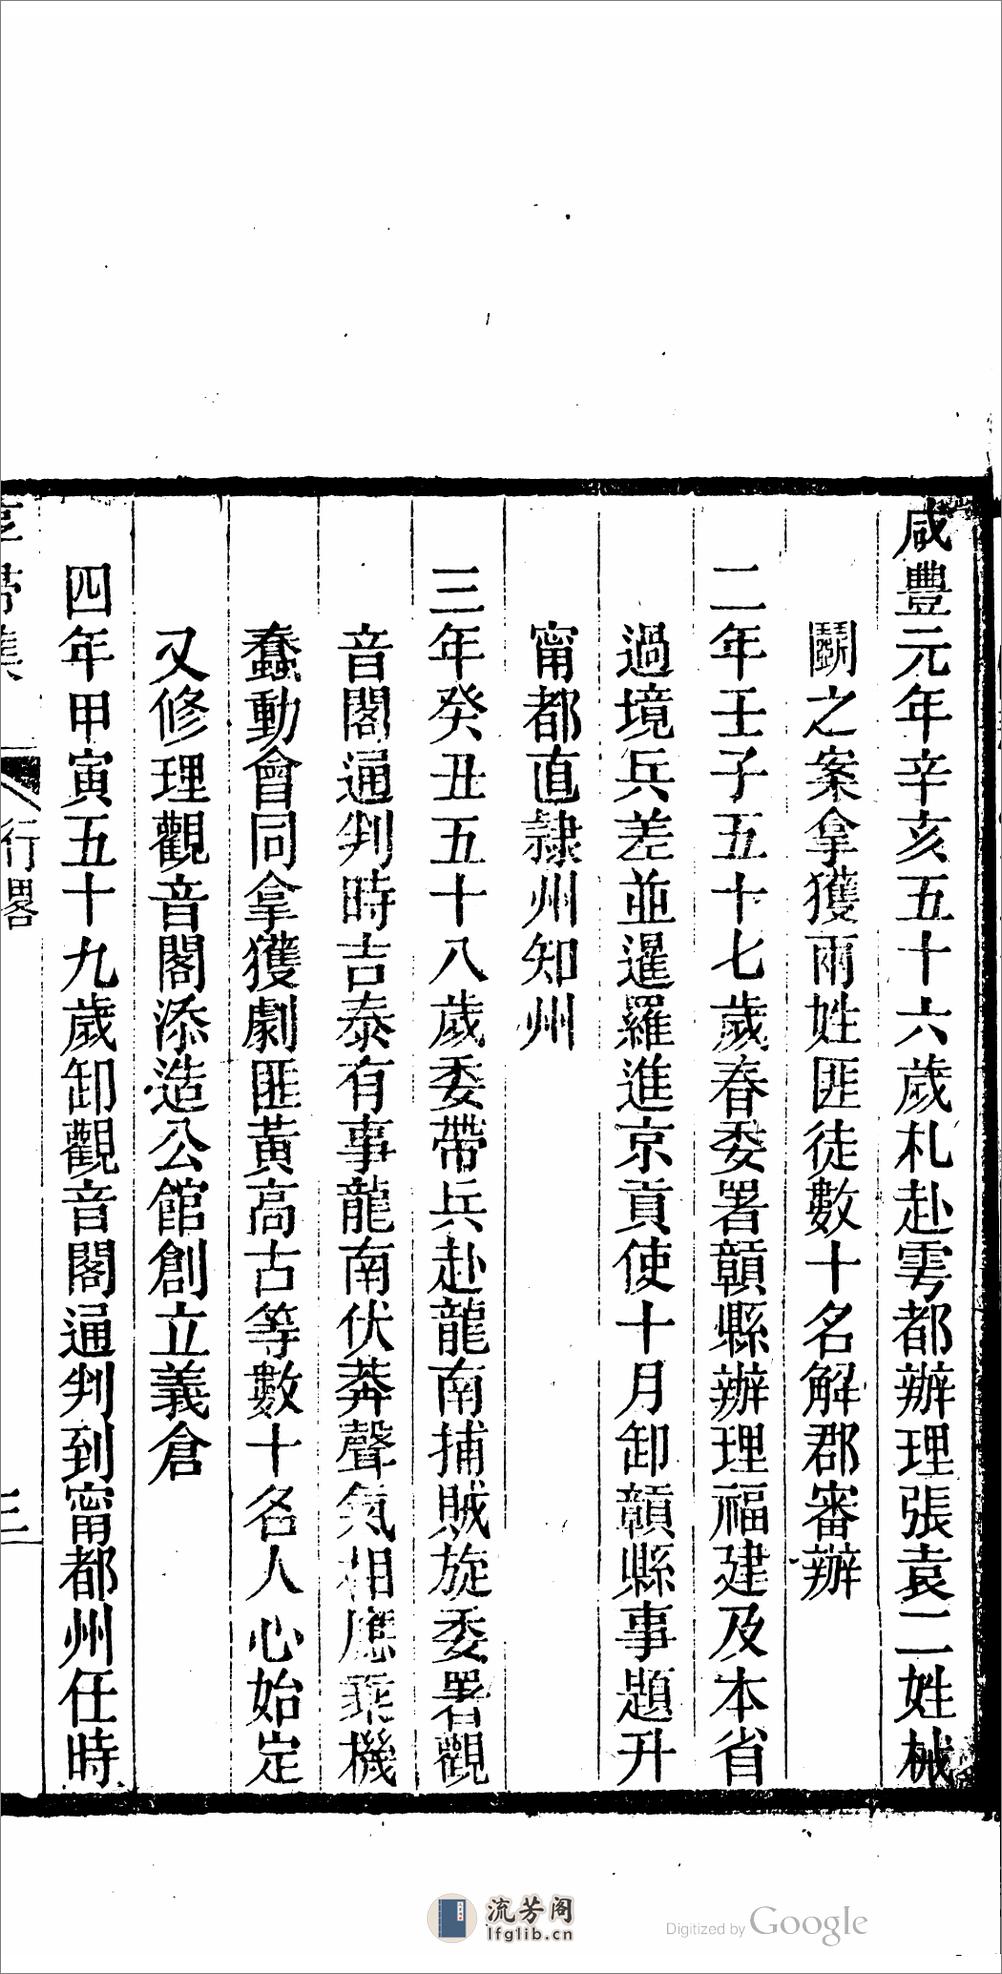 咸豐元年辛亥五十六歲札赴雩都辦理張袁二姓械
鬬之案拿獲兩姓匪徒數十名解郡審辦
二年壬子五十七歲春委署贑縣辦理福建及本省
過境兵差並暹羅進京貢使十月卸贑縣事題升
甯都直隸州知州
三年癸丑五十八歲委帶兵赴龍南捕賊旋委署觀
音閣通判時吉泰有事龍南伏莽聲氣相應乘機
蠢動會同拿獲劇匪黃高古等數十名人心始定
又修理觀音閣添造公館創立義倉
四年甲寅五十九歲卸觀音閣通判到甯都州任時
行畧
三
流芳阁
lfglib.cn
Digitized by Google